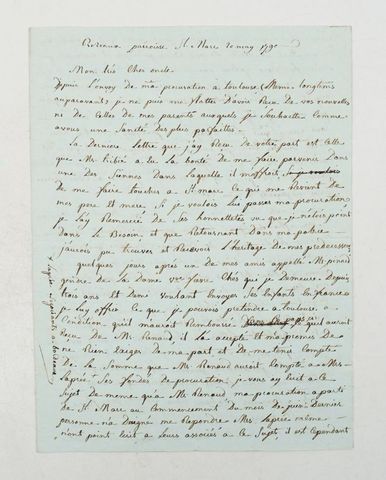 Bordeaux paroisse St Marc 20 may 1790
Mon très Cher oncle
Depuis l'envoy de ma procuration à toulouse (Meme longtems
auparavant) je ne puis me flatter d'avoir Recu de vos nouvelles
ni de Celles de mes parents auxquels je Souhaitte Comme
avous une Santé Des plus parfaittes.
La Derniere Lettre que j'ay Recu De votre part est Celle
que Mr a Eu la bonté De me faire parvenir Dans
une Des Siennes Dans laquelle il m'offroit
De me faire toucher a St marc Ce qui me Revient De
mes pere et mere. Si je voulois Luy passer ma procuration
je L'ay Remercié De Ses honnettetés vu que je n'etois point
Dans le Besoin et que Retournant Dans ma patrie
jaurois pu trouver et Recevoir l'heritage De mes predecesseurs
quelques jours après un De mes amis appellé Mr
gendre De La Dame Vve favre Chés qui je Demeure Depuis
trois ans Et Demi voulant Envoyer Ses Enfants En france
je luy offris Ce que je pouvois pretendre a toulouse a
Condition qu'il mauroit Remboursé qu'il auroit
Recu De Mr Renaud il la accepté Et ma promis De
ne Rien Exiger De ma part et De me tenir Compte
De la Somme que Mr Renaud auroit Compté a Mrs
Lapré Ses fondés De procuration je vous ay Ecrit a Ce
Sujet De meme qu'a Mr Renaud ma procuration a parti
De St Marc au Commencement Du mois De juin Dernier
personne n'a Daigné me Repondre Mrs Lapré même
n'ont point Ecrit a leurs associés a Ce Sujet il est Cependant
Lapré negotiants a Bordeaux